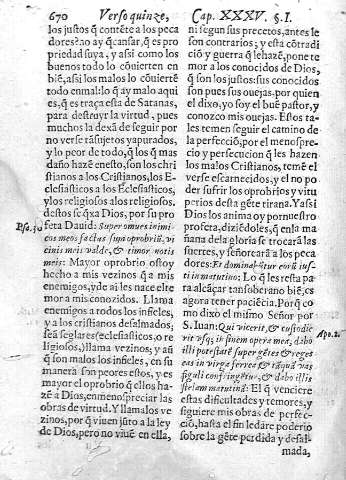 670 Verso quinze, Cap. XXXV. §. I.
los justos q̃ contẽte a los peca
dores? no ay q̃ cansar, q̃ es pro
priedad suya, y assi como los
buenos todo lo cõuierten en
biẽ, assi los malos lo cõuiertẽ
todo en mal: lo q̃ ay malo aqui
es, q̃ es traça esta de Satanas,
para destruyr la virtud, pues
muchos la dexã de seguir por
no verse tã sujetos y apurados,
y lo peor de todo, q̃ los q̃ mas
daño hazẽ en esto, son los chri
stianos a los Cristianos, los E-
clesiasticos a los Eclesiasticos,
y los religiosos a los religiosos.
destos se q̃xa Dios, por su pro
feta Dauid: Super omnes inimi
cos meos factus sum opprobriũ, vi
cinis meis valde, & timor notis
meis: Mayor oprobrio estoy
hecho a mis vezinos q̃ a mis
enemigos, y de ai les nace eltre
mor a mis conozidos. Llama
enemigos a todos los infieles,
y a los cristianos desalmados;
seã seglares (eclesiasticos, o re
ligiosos,) llama vezinos; y aũ
q̃ son malos los infieles, en su
manera son peores estos, y es
mayor el oprobrio q̃ ellos ha-
zẽ a Dios, en menospreciar las
obras de virtud. Y llamalos ve
zinos, por q̃ viuen jũto a la ley
de Dios, pero no viuẽ en ella,
ni segun sus precetos, antes le
son contrarios; y esta cõtradi
ció y guerra q̃ le hazẽ, pone te
mor a los conocidos de Dios,
q̃ son los justos: sus conocidos
son pues sus ouejas, por quien
el dixo, yo soy el buẽ pastor, y
conozco mis ouejas. Estos ta-
les temen seguir el camino de
la perfecciõ, por el menospre-
cio y persecucion q̃ les hazen
los malos Cristianos, temẽ el
verse escarnecidos, y el no po
der sufrir los oprobrios y vitu
perios desta gẽte tirana. Ya assi
Dios los anima oy por nuestro
profeta, diziẽdoles, q̃ en la ma
ñana de la gloria se trocarã las
suertes, y señorearã a los peca
dores: Et dominabũtur eorũ ius
ti in matutino; Lo q̃ les resta pa
ra alcãçar tan soberano biẽ, es
agora tener paciẽcia. Porq̃ co
mo dixo el mismo Señor por
S. Iuan: Qui vicerit, & custodie
rit vsq; in finem opera mea, dabo
illi potestatẽ super gẽtes & reget
eas in virga ferrea & tãquã vas
figuli confringẽtur, & dabo illi
stellam matutinã: El q̃ venciere
estas dificultades y temores, y
siguiere mis obras de perfec-
ciõ, hasta el fin le dare poderio
sobre la gẽte perdida y desal-
mada,
Apo. 2.